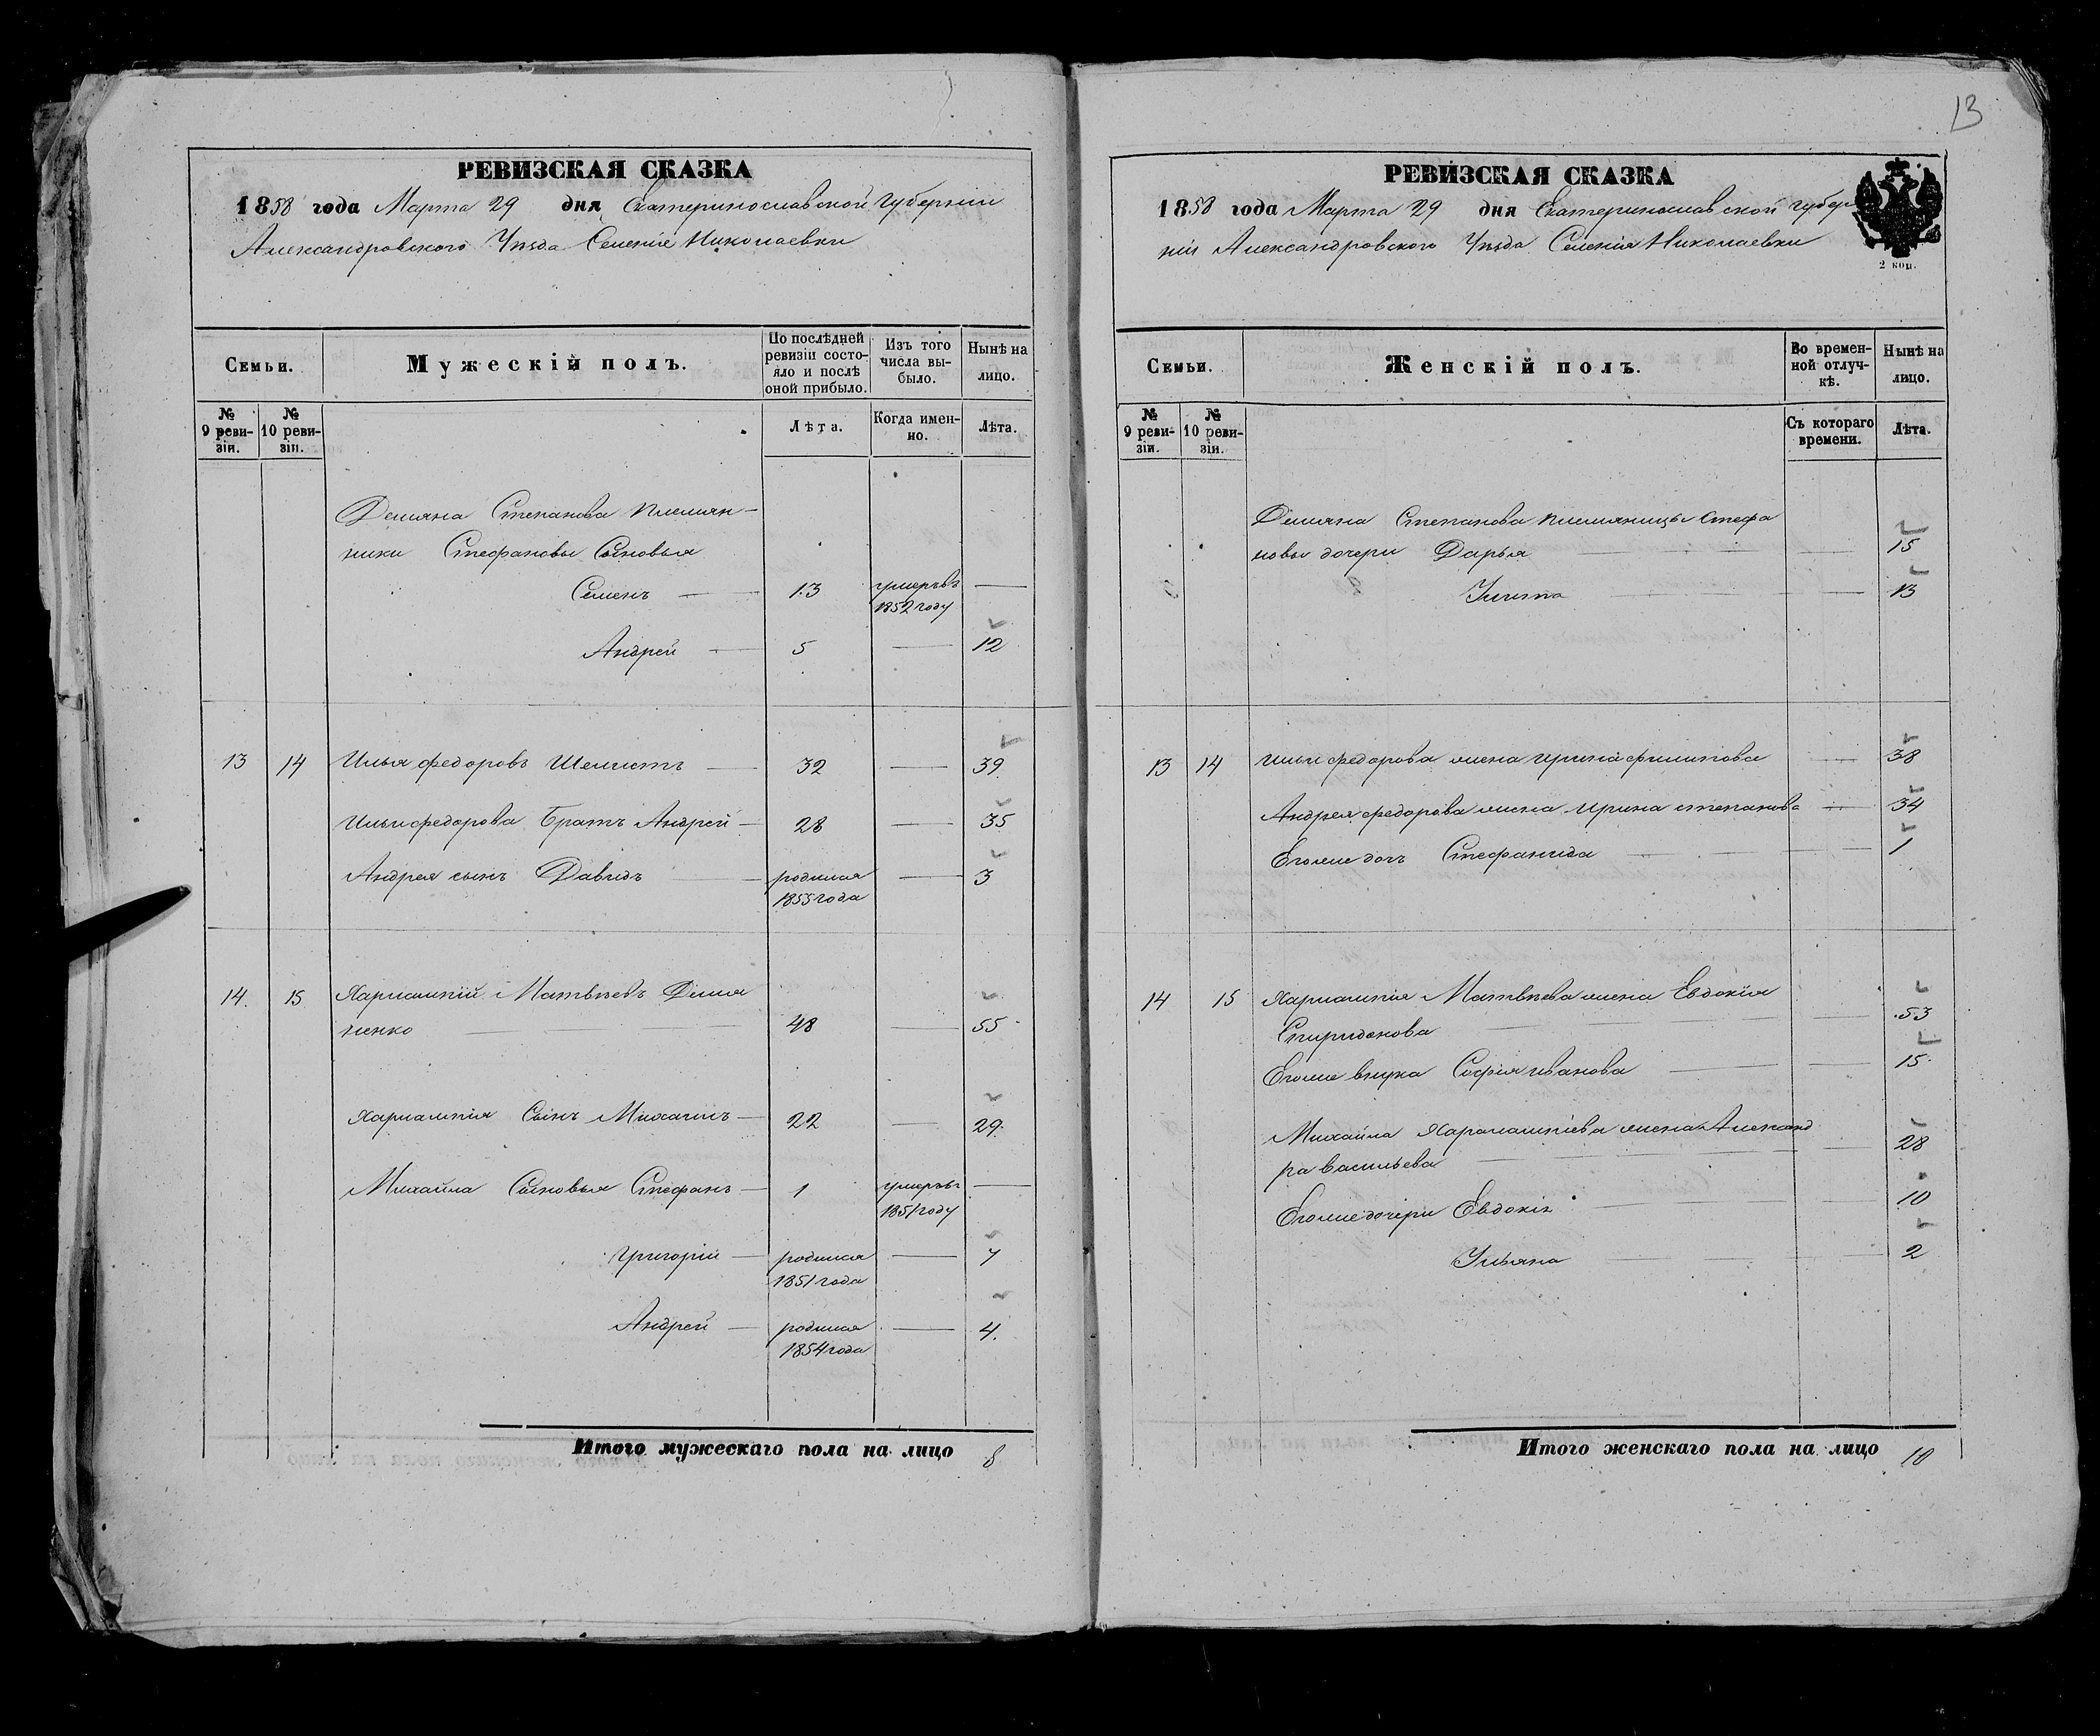 13
РЕВИЗСКАЯ СКАЗКА
1858 года Марта 29 дня Екатеринославской Губерніи
Александровского Уѣзда Селенія Николаевки
Семьи.
Мужескій полъ.
По послѣдней ревизіи состояло и послѣ оной прибыло.
Изъ того числа выбыло.
Нынѣ на лицо.
№ 9 ревизіи.
№ 10 ревизіи.
Лѣта.
Когда именно.
Лѣта.
Демяна Степанова племян-
ники Стефановы Сыновья
Семенъ 13 умеръ въ 1852 году
Андрей 5 12
13 14 Илья федоровъ 32 39.
Ильи федорова Братъ Андрей 28 35
Андрея сынъ Давидъ родился 1855 года 3
14. 15 Харлампій Матвѣевъ Демя
ченко 48 55
Харлампія Сынъ Михаилъ 22 29.
Михайла Сыновья Стефанъ 1 умеръ въ 1851 году
Григорій родился 1851 года 7
Андрей родился 1854 года 4.
Итого мужескаго пола на лицо 8
РЕВИЗСКАЯ СКАЗКА
1858 года Марта 29 дня Екатеринославской Губер
ніи Александровского Уѣзда Селенія Николаевки
2 коп.
Семьи.
Женскій полъ.
Во временной отлучкѣ.
Нынѣ на лицо.
№ 9 ревизіи.
№ 10 ревизіи.
Съ котораго времени.
Лѣта.
Демяна Степанова племяницы Стефа
новы дочери Дарья 15
Улита 13
13 14 Ильи федорова жена Ирина филипова 38
Андрея федорова жена Ирина степанова 34
Егоже дочь Стефанида 1
14 15 Харлампія Матвѣева жена Евдокія
Спиридонова 53
Егоже внука Софія иванова 15
Михайла Харалампіева жена Александ
ра Васильева 28
Егоже дочери Евдокія 10
Ульяна 2
Итого женскаго пола на лицо 10